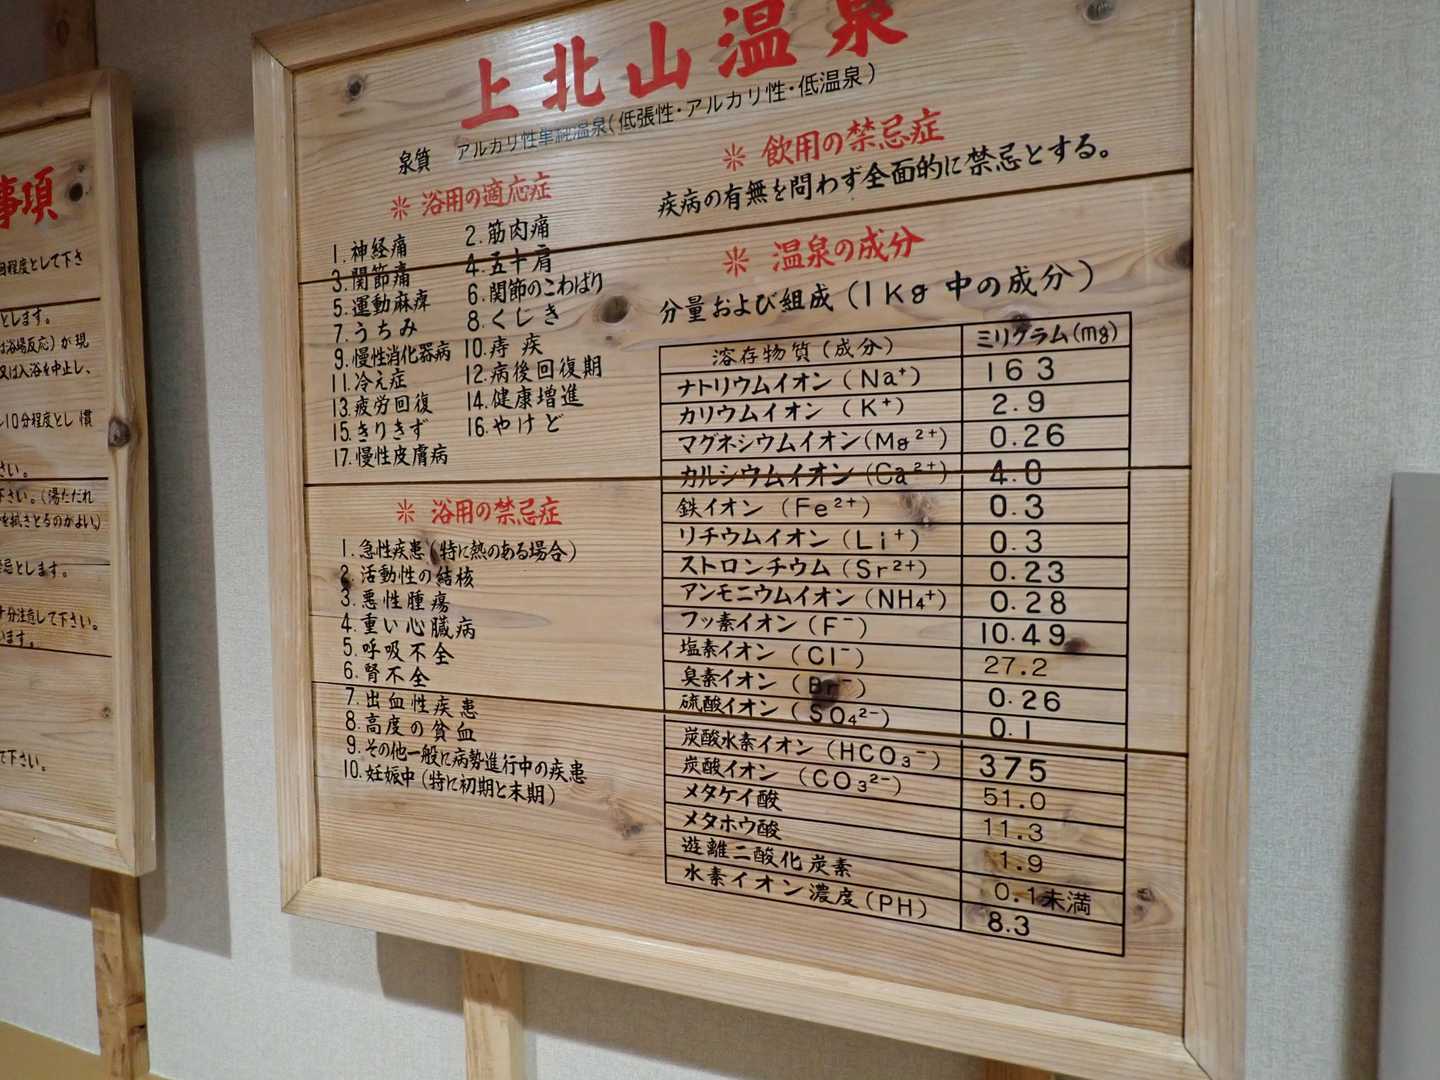 事項
回程度として下さ
とします。
は浴場反応)が現
又は入浴を中止し、
〜10分程度とし 慣
さい。
下さい。(湯ただれ
を拭きとるのがよい)
忌とします。
十分注意して下さい。
います。
て下さい。
上北山温泉
泉質 アルカリ性単純温泉(低張性・アルカリ性・低温泉)
※ 浴用の適応症
1. 神経痛 2. 筋肉痛
3. 関節痛 4. 五十肩
5. 運動麻痺 6. 関節のこわばり
7. うちみ 8. くじき
9. 慢性消化器病 10. 痔疾
11. 冷え症 12. 病後回復期
13. 疲労回復 14. 健康増進
15. きりきず 16. やけど
17. 慢性皮膚病
※ 浴用の禁忌症
1. 急性疾患(特に熱のある場合)
2. 活動性の結核
3. 悪性腫瘍
4. 重い心臓病
5. 呼吸不全
6. 腎不全
7. 出血性疾患
8. 高度の貧血
9. その他一般に病勢進行中の疾患
10. 妊娠中(特に初期と末期)
※ 飲用の禁忌症
疾病の有無を問わず全面的に禁忌とする。
※ 温泉の成分
分量および組成(1Kg中の成分)
溶存物質(成分) ミリグラム(mg)
ナトリウムイオン(Na⁺) 163
カリウムイオン(K⁺) 2.9
マグネシウムイオン(Mg²⁺) 0.26
カルシウムイオン(Ca²⁺) 4.0
鉄イオン(Fe²⁺) 0.3
リチウムイオン(Li⁺) 0.3
ストロンチウム(Sr²⁺) 0.23
アンモニウムイオン(NH₄⁺) 0.28
フッ素イオン(F⁻) 10.49
塩素イオン(Cl⁻) 27.2
臭素イオン(Br⁻) 0.26
硫酸イオン(SO₄²⁻) 0.1
炭酸水素イオン(HCO₃⁻) 375
炭酸イオン(CO₃²⁻) 51.0
メタケイ酸 11.3
メタホウ酸 1.9
遊離二酸化炭素 0.1未満
水素イオン濃度(PH) 8.3